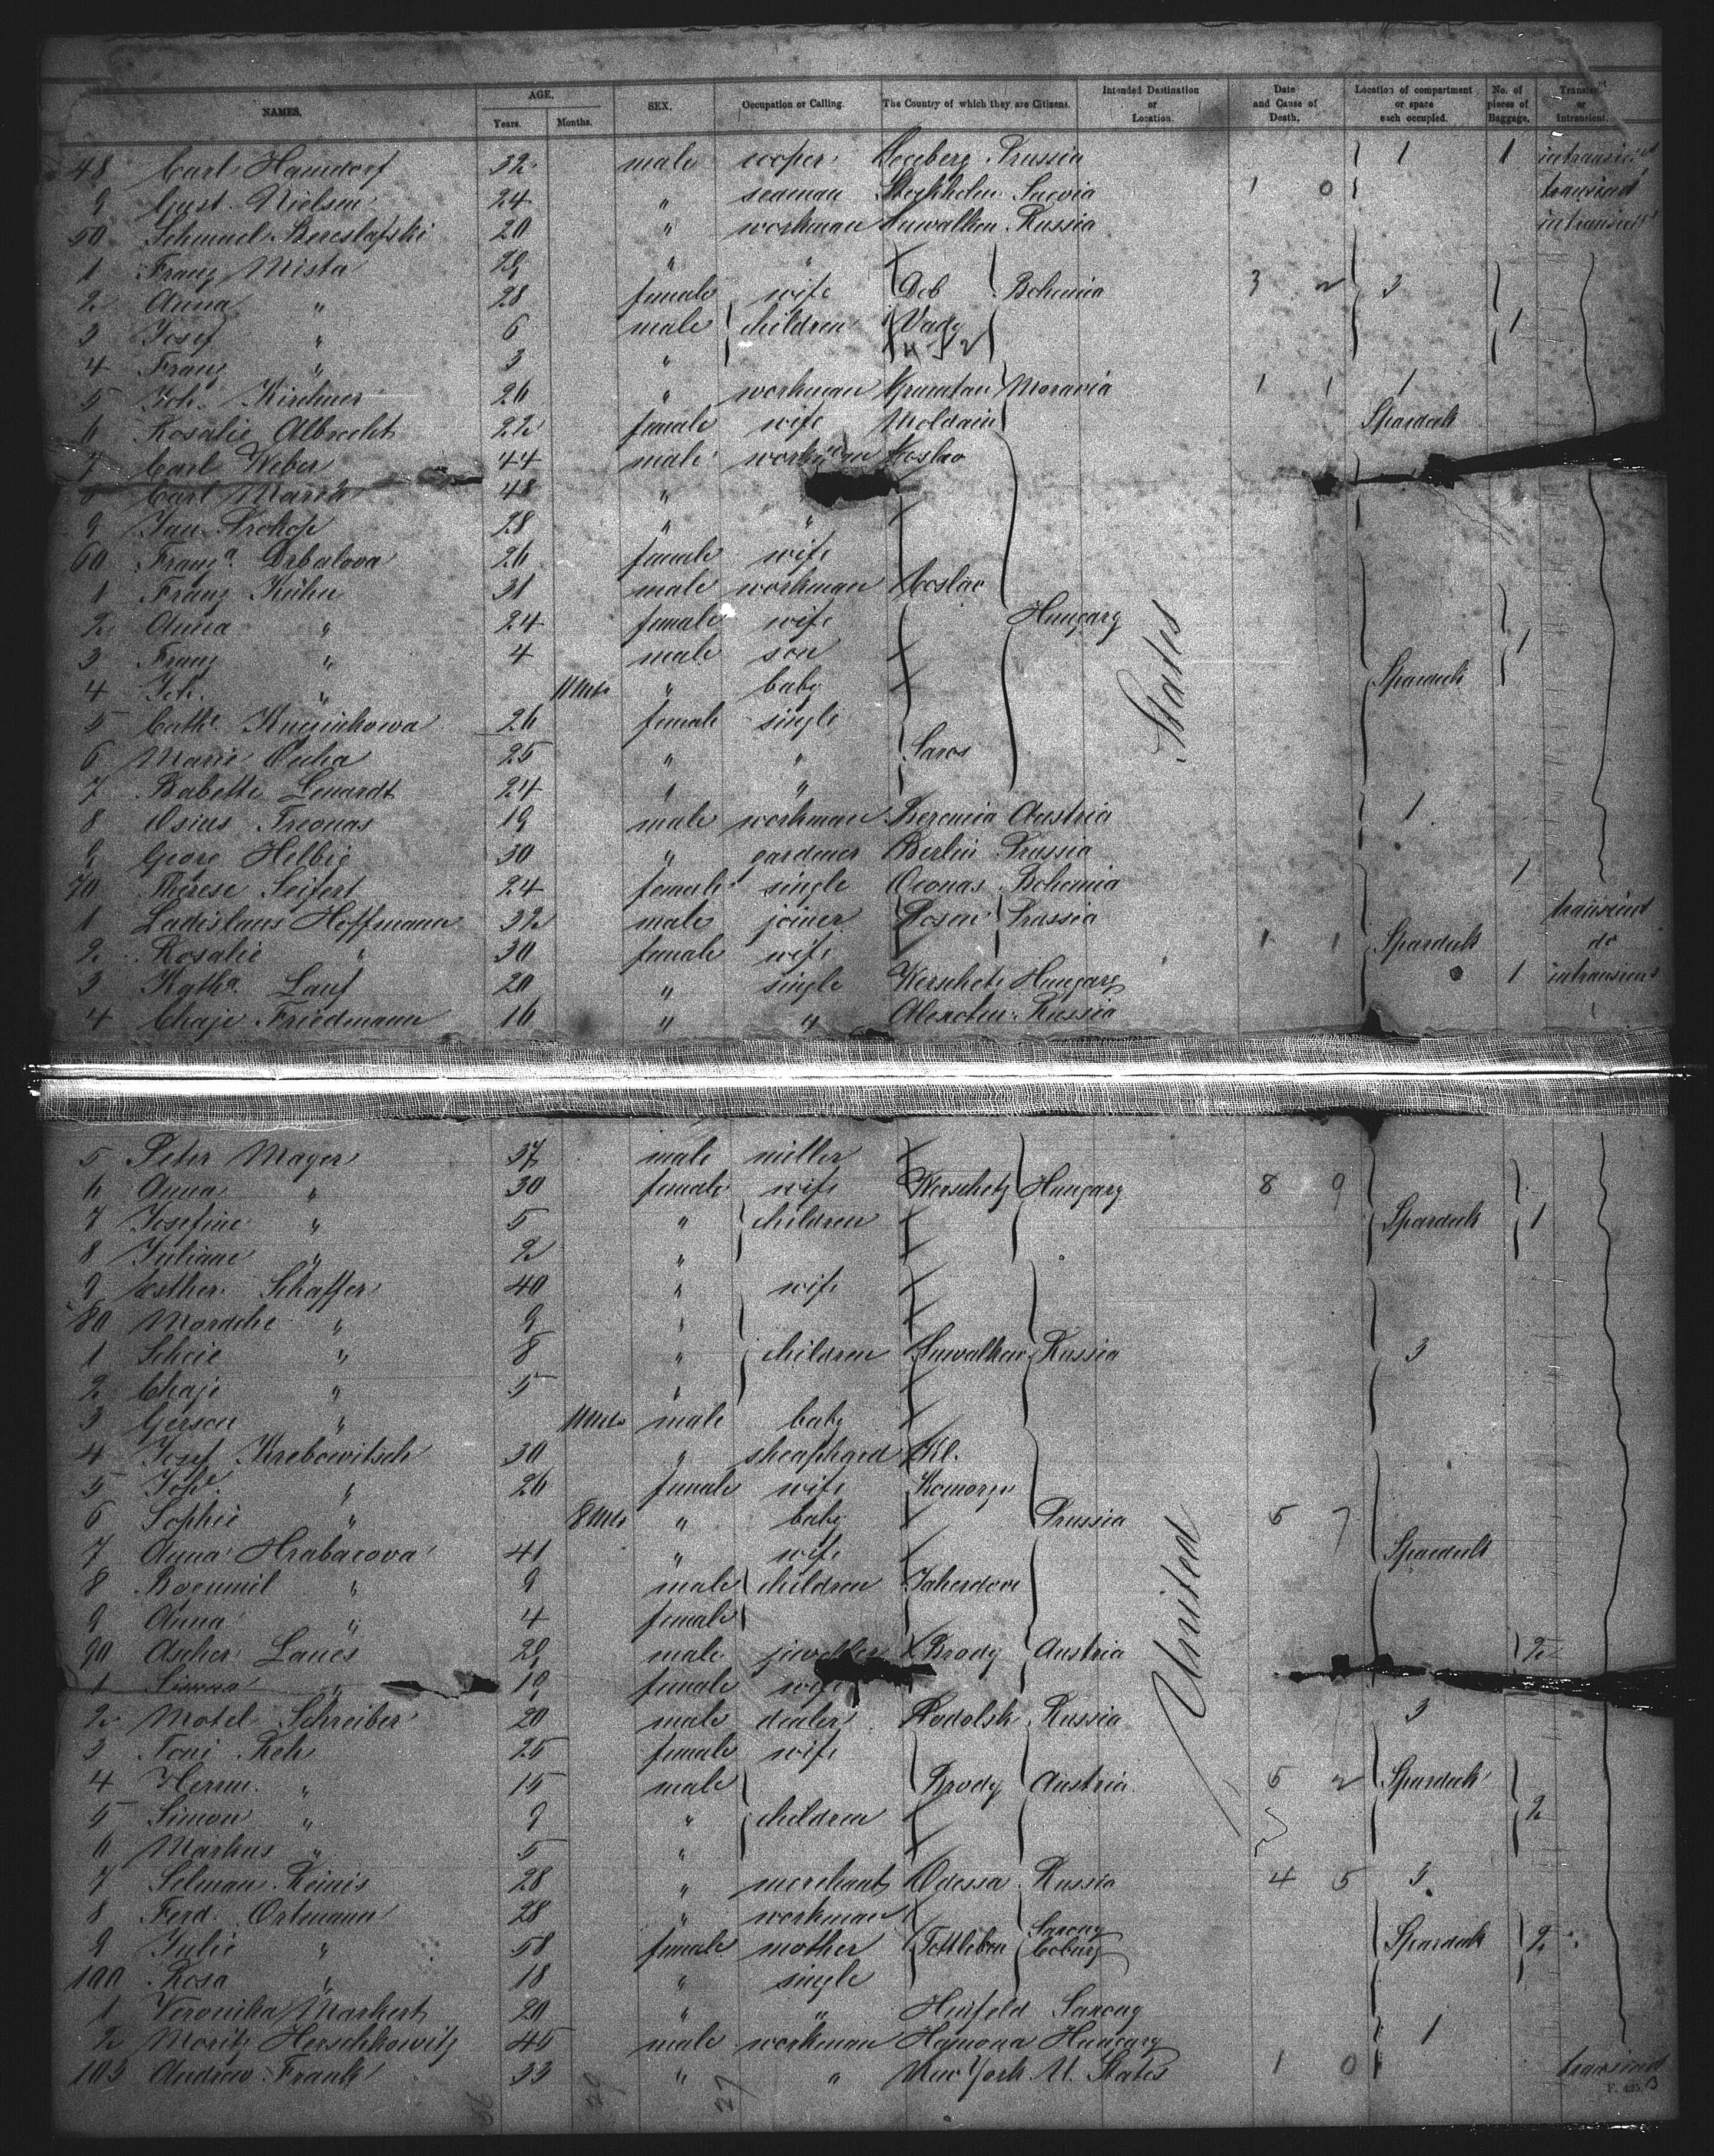 NAMES. AGE. Years. Months. SEX. Occupation or Calling. The Country of which they are Citizens. Intended Destination or Location. Date and Cause of Death. Location of compartment or space each occupied. No. of pieces of Baggage. Transient or Intransient.
48 Carl Hamdorf 32 male cooper Segeberg Prussia 1 1 intransient
9 Gust. Nielsen 24 " seaman Stockholm Suevia 1 0 transient
50 Schmuel Bereslafski 20 " workman Suwalken Russia intransient
1 Franz Mista 29 " "
2 Anna " 28 female wife Dob Bohemia 3 2 3
3 Josef " 6 male children 1
4 Franz " 3 "
5 Joh. Kirchner 26 " workman Moravia 1 1 1
6 Rosalie Albrecht 22 female wife Moldain Spardeck
7 Carl Weber 44 male workman Koslao
8 Carl March 48 "
9 Jan Prokop 28 " "
60 Franzª Drbalova 26 female wife
1 Franz Kühn 31 male workman Koslao
2 Anna " 24 female wife Hungary
3 Franz " 4 male son 1
4 Joh. " 11 Mts " baby Spardeck
5 Cathe 26 female single
6 Marie Cucha 25 " " Saros
7 Babette Lenardt 24 " "
8 Osias Treonas 19 male workman Austria 1
9 Georg Helbig 30 " gardener Berlin Prussia
70 Therese Seifert 24 female single Bohemia 1
1 Ladislaus Hoffmann 32 male joiner Posen Prussia transient
2 Rosalie " 30 female wife 1 1 Spardeck do
3 Kathª Lauf 20 " single Werschetz Hungary 1 intransient
4 Chaje Friedmann 16 " " Russia
States
5 Peter Mayer 37 male miller
6 Anna " 30 female wife Werschetz Hungary 8 9
7 Josefine " 5 " children Spardeck 1
8 Juliane " 2 "
9 Esther Schaffer 40 " wife
80 Mordche " 9 "
1 Scheie " 8 " children Suwalken Russia 3
2 Chaje " 5 "
3 Gerson " 11 Mts male baby
4 Josef Krebowitsch 30 " sheaphard Kl.
5 Johª " 26 female wife Komorze
6 Sophie " 8 Mts " baby Prussia 5 7
7 Anna Hrabacova 41 " wife Spardeck
8 Bogumil " 9 male children
9 Anna " 4 female
90 Ascher Lanes 29 male jeweller Brody Austria 2
1 " 19 female wife
2 Motel Schreiber 20 male dealer Podolsk Russia 3
3 Toni Reh 25 female wife
4 Herm. " 15 male Brody Austria 5 2 Spardeck
5 Simon " 9 " children 2
6 Markus " 5 "
7 Selman Reinis 28 " merchant Odessa Russia 4 5 3
8 Ferd. Ortmann 28 " workman
9 Julie " 58 female mother Tottleben Saxony Coburg Spardeck 2
100 Rosa " 18 " single
1 Veronika Markert 20 " " Hünfeld Saxony
2 Moritz Herschkowitz 45 male workman Hamona Hungary 1
103 Andrew Frank 33 " " New York U. States 1 0 transient
United